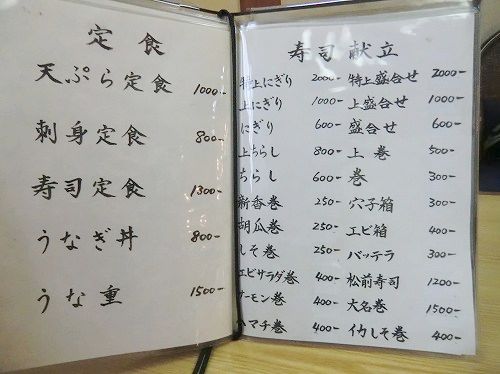 定食
天ぷら定食 1000-
刺身定食 800-
寿司定食 1300-
うなぎ丼 800-
うな重 1500-
寿司献立
特上にぎり 2000- 特上盛合せ 2000-
上にぎり 1000- 上盛合せ 1000-
にぎり 600- 盛合せ 600-
上ちらし 800- 上巻 500-
ちらし 600- 巻 300-
新香巻 250- 穴子箱 300-
胡瓜巻 250- エビ箱 400-
しそ巻 250- バッテラ 300-
エビサラダ巻 400- 松前寿司 1200-
サーモン巻 400- 大名巻 1500-
ハマチ巻 400- イカしそ巻 400-